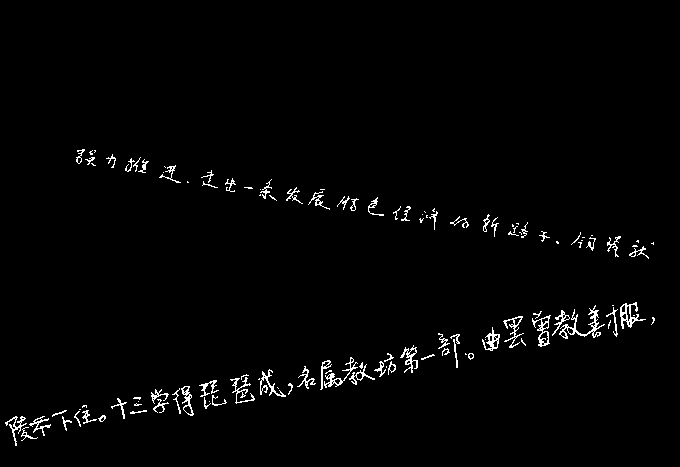 强力推进、走出一条发展特色经济的新路子、
陵下住。十三学得琵琶成，名属教坊第一部。曲罢曾教善服，